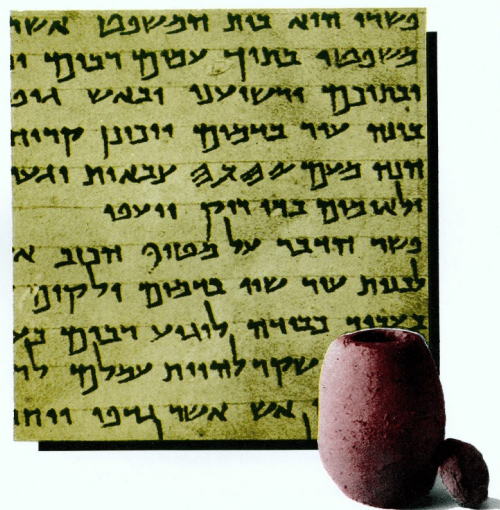 פשרו הוא בית המשפט אשר
משפטו בתוך עמים רבים
ובתוכם ירשיענו ובאש גופ
בונה עיר בדמים ויכונן קריה
הנה מעם 𐤉𐤄𐤅𐤄 צבאות יגעו
ולאומים בדי ריק ייעפו
פשר הדבר על מטיף הכזב א
לבנות עיר שוו בדמים ולקים
בעבור כבודה לוגיע רבים בע
שקר להיות עמלם לר
אש אשר גדפו ויחר